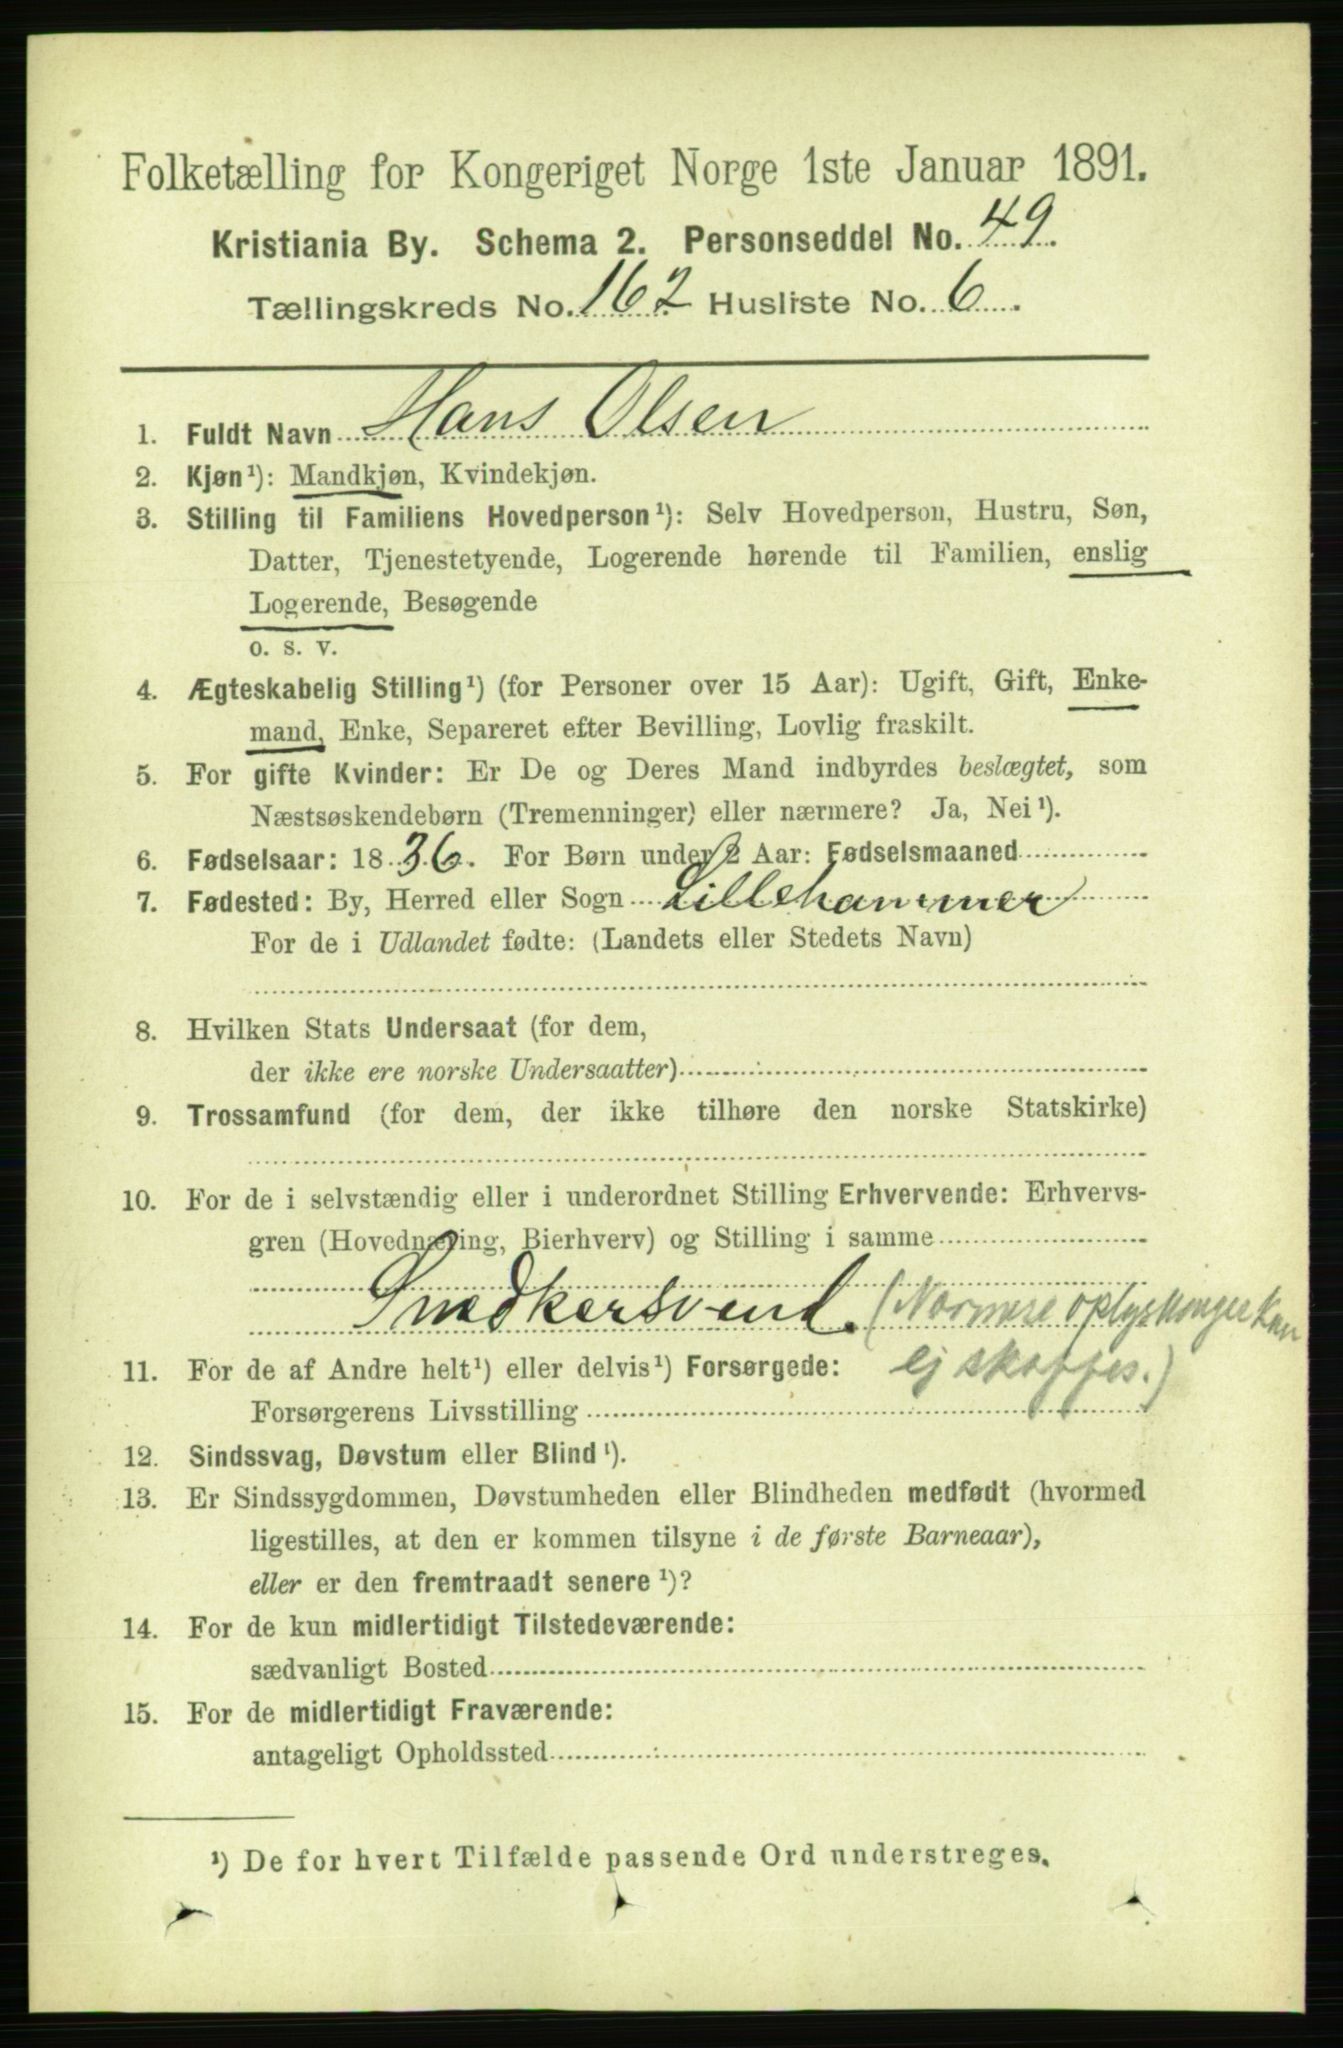 Folketælling for Kongeriget Norge 1ste Januar 1891.
Kristiania By. Schema 2. Personseddel No. 49.
Tællingskreds No. 162 Husliste No. 6.
1. Fuldt Navn Hans Olsen
2. Kjøn¹): Mandkjøn, Kvindekjøn.
3. Stilling til Familiens Hovedperson¹): Selv Hovedperson, Hustru, Søn,
Datter, Tjenestetyende, Logerende hørende til Familien, enslig
Logerende, Besøgende
o. s. v.
4. Ægteskabelig Stilling¹) (for Personer over 15 Aar): Ugift, Gift, Enke-
mand, Enke, Separeret efter Bevilling, Lovlig fraskilt.
5. For gifte Kvinder: Er De og Deres Mand indbyrdes beslægtet, som
Næstsøskendebørn (Tremenninger) eller nærmere? Ja, Nei¹).
6. Fødselsaar: 1836. For Børn under 2 Aar: Fødselsmaaned
7. Fødested: By, Herred eller Sogn Lillehammer
For de i Udlandet fødte: (Landets eller Stedets Navn)
8. Hvilken Stats Undersaat (for dem,
der ikke ere norske Undersaatter)
9. Trossamfund (for dem, der ikke tilhøre den norske Statskirke)
10. For de i selvstændig eller i underordnet Stilling Erhvervende: Erhvervs-
gren (Hovednæring, Bierhverv) og Stilling i samme
Snedkersvend. (Nærmere oplysninger kan
ej skaffes.)
11. For de af Andre helt¹) eller delvis¹) Forsørgede:
Forsørgerens Livsstilling
12. Sindssvag, Døvstum eller Blind¹).
13. Er Sindssygdommen, Døvstumheden eller Blindheden medfødt (hvormed
ligestilles, at den er kommen tilsyne i de første Barneaar),
eller er den fremtraadt senere¹)?
14. For de kun midlertidigt Tilstedeværende:
sædvanligt Bosted
15. For de midlertidigt Fraværende:
antageligt Opholdssted
¹) De for hvert Tilfælde passende Ord understreges.